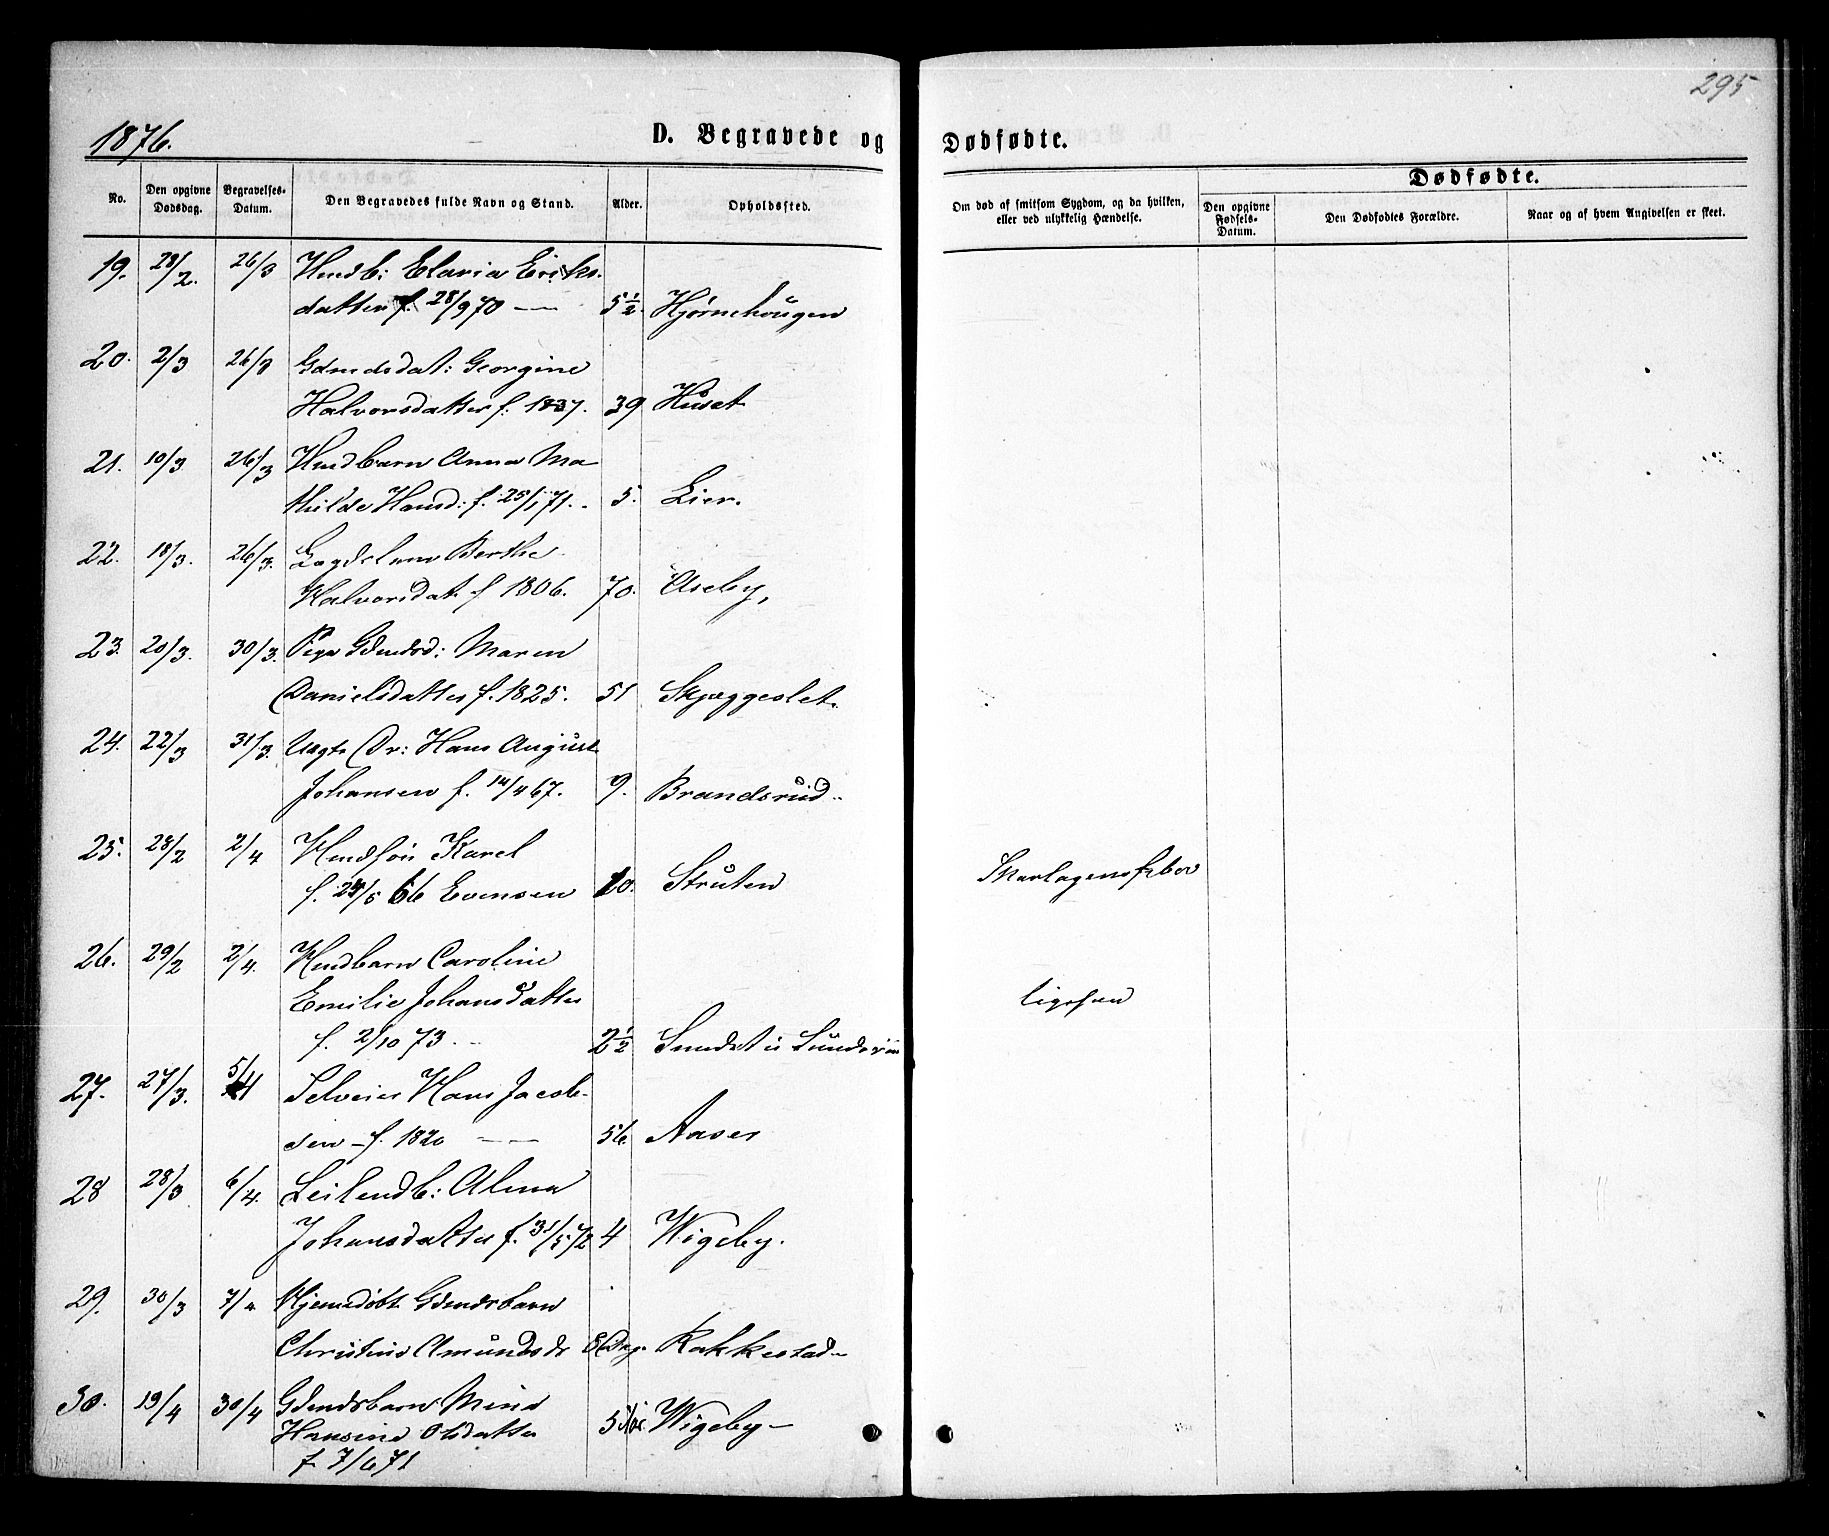 295
1876.
D. Begravede og Dødfødte.
Dødfødte.
No.
Den opgivne Dødsdag.
Begravelses-Datum.
Den Begravedes fulde Navn og Stand.
Alder.
Opholdssted.
Om død af smitsom Sygdom, og da hvilken, eller ved ulykkelig Hændelse.
Den opgivne Fødsels-Datum.
Den Dødfødtes Forældre.
Naar og af hvem Angivelsen er skeet.
19. 28/2. 26/3 Husdb: Elavia Eriks-
datter f. 28/9 70 — 5½. Hjørnehougen
20. 2/3 26/3 Gdmdsdat: Georgine
Halvorsdatter f: 1837. 39 Huset
21. 10/3 26/3 Husdbarn Anna Ma
thilde Hansd: f. 25/1 71. 5. Lier.
22. 18/3. 26/3. Lægdslem Berthe
Halvorsdat. f 1806. 70. Aseby,
23. 20/3. 30/3. Pige Gdmdsd: Maren
Danielsdatter f. 1825. 51 Skjæggeslet.
24. 22/3 31/3. Uægte Dr: Hans August
Johansen f. 14/4 67. 9. Brandsrud
25. 28/2 2/4 Husdsøn Karel
f. 28/5 66 Evensen 10. Struten Skarlagensfeber
26. 29/2 2/4. Husdbarn Caroline
Emilie Johansdatter ligesaa
f. 2/10 73. 2½ Sundet
27. 27/3. 5/4 Selveier Hans Jacob-
sen - f. 1820 — 56. Aaser
28 28/3 6/4. Leilendb: Alma
Johansdatter f. 31/5 72 4 Wigeby.
29. 30/3 7/4 Hjemedøbt Gdmdsbarn
Christine Amundsdr Dag. Rakkestad
30. 19/4 30/4 Gdmdsbarn Mina
Hansine Olsdatter 5 Wigeby
f. 7/6 71